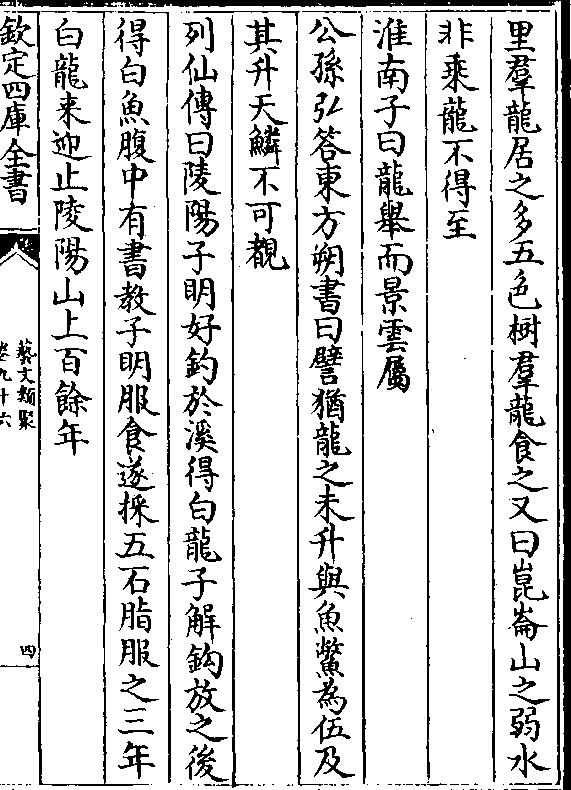 里羣龍居之多五色樹羣龍食之又曰崑崙山之弱水
非乘龍不得至
淮南子曰龍舉而景雲屬
公孫弘答東方朔書曰譬猶龍之未升與魚鱉為伍及
其升天鱗不可覩
列仙傳曰陵陽子明好釣於溪得白龍子解鈎放之後
得白魚腹中有書教子明服食遂採五石脂服之三年
白龍来迎止陵陽山上百餘年
欽定四庫全書
藝文類聚
卷九十六
四